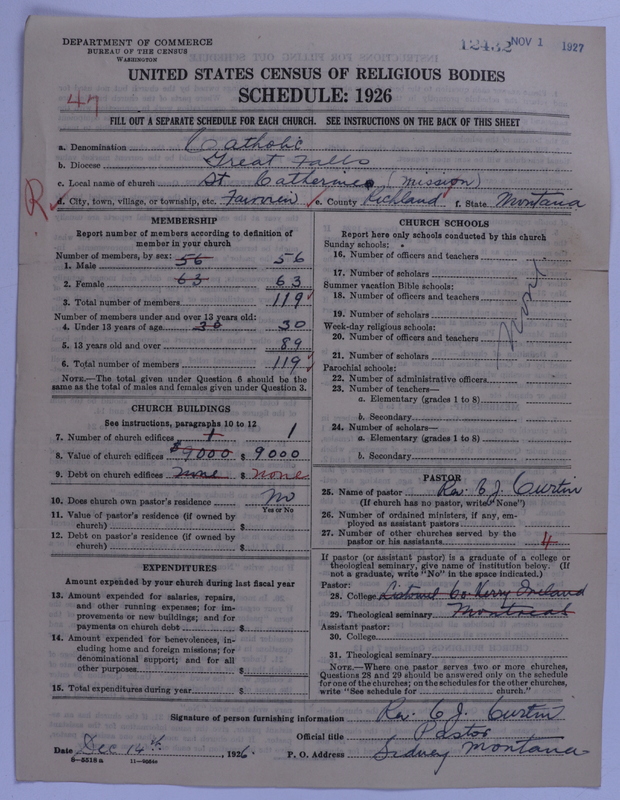 DEPARTMENT OF COMMERCE
BUREAU OF THE CENSUS
WASHINGTON
12432 NOV 1 1927
UNITED STATES CENSUS OF RELIGIOUS BODIES
SCHEDULE: 1926
47
FILL OUT A SEPARATE SCHEDULE FOR EACH CHURCH. SEE INSTRUCTIONS ON THE BACK OF THIS SHEET
a. Denomination Catholic
b. Diocese Great Falls
c. Local name of church St Catherines (Mission)
R d. City, town, village, or township, etc. Fairview e. County Richland f. State Montana
MEMBERSHIP
Report number of members according to definition of
member in your church
Number of members, by sex:
1. Male 56 56
2. Female 63 63
3. Total number of members 119
Number of members under and over 13 years old:
4. Under 13 years of age 30 30
5. 13 years old and over 89
6. Total number of members 119
NOTE.—The total given under Question 6 should be the
same as the total of males and females given under Question 3.
CHURCH BUILDINGS
See instructions, paragraphs 10 to 12
7. Number of church edifices 1 1
8. Value of church edifices $9000 $ 9000
9. Debt on church edifices none $ none
10. Does church own pastor's residence No
Yes or No
11. Value of pastor's residence (if owned by
church) $
12. Debt on pastor's residence (if owned by
church) $
EXPENDITURES
Amount expended by your church during last fiscal year
13. Amount expended for salaries, repairs,
and other running expenses; for im-
provements or new buildings; and for
payments on church debt $
14. Amount expended for benevolences, in-
cluding home and foreign missions; for
denominational support; and for all
other purposes $
15. Total expenditures during year $
CHURCH SCHOOLS
Report here only schools conducted by this church
Sunday schools:
16. Number of officers and teachers
17. Number of scholars
Summer vacation Bible schools:
18. Number of officers and teachers
19. Number of scholars
Week-day religious schools:
20. Number of officers and teachers
21. Number of scholars
None
Parochial schools:
22. Number of administrative officers
23. Number of teachers—
a. Elementary (grades 1 to 8)
b. Secondary
24. Number of scholars—
a. Elementary (grades 1 to 8)
b. Secondary
PASTOR
25. Name of pastor Rev. C J. Curtin
(If church has no pastor, write "None")
26. Number of ordained ministers, if any, em-
ployed as assistant pastors
27. Number of other churches served by the
pastor or his assistants 4
If pastor (or assistant pastor) is a graduate of a college or
theological seminary, give name of institution below. (If
not a graduate, write "No" in the space indicated.)
Pastor:
28. College Listowel Co. Kerry Ireland
29. Theological seminary Montreal
Assistant pastor:
30. College
31. Theological seminary
NOTE.—Where one pastor serves two or more churches,
Questions 28 and 29 should be answered only on the schedule
for one of the churches; on the schedules for the other churches,
write "See schedule for church."
Signature of person furnishing information Rev. C J. Curtin
Official title Pastor
Date Dec 14th, 1926. P. O. Address Sidney Montana
8-5518 a